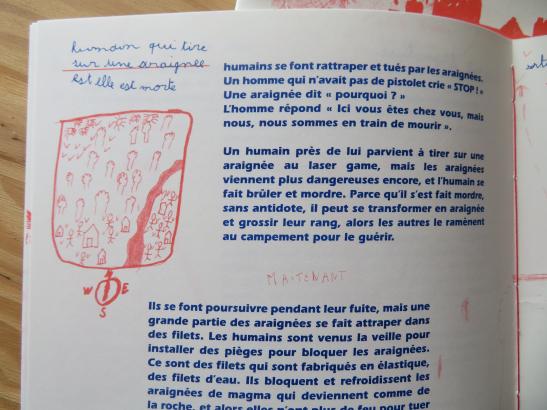 Humain qui tire
sur une araignée
est elle est morte
humains se font rattraper et tués par les araignées.
Un homme qui n'avait pas de pistolet crie « STOP ! »
Une araignée dit « pourquoi ? »
L'homme répond « Ici vous êtes chez vous, mais
nous, nous sommes en train de mourir ».
Un humain près de lui parvient à tirer sur une
araignée au laser game, mais les araignées
viennent plus dangereuses encore, et l'humain se
fait brûler et mordre. Parce qu'il s'est fait mordre,
sans antidote, il peut se transformer en araignée
et grossir leur rang, alors les autres le ramènent
au campement pour le guérir.
W E
S
MA-TENANT
Ils se font poursuivre pendant leur fuite, mais une
grande partie des araignées se fait attraper dans
des filets. Les humains sont venus la veille pour
installer des pièges pour bloquer les araignées.
Ce sont des filets qui sont fabriqués en élastique,
des filets d'eau. Ils bloquent et refroidissent les
araignées de magma qui deviennent comme de
la roche, et alors elles n'ont plus de feu pour tuer